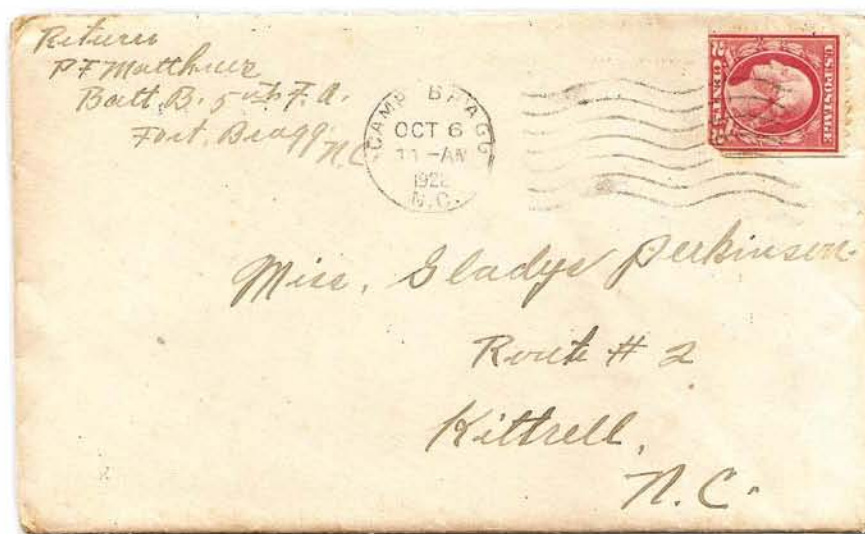 Return
P F Matthews
Batt. B. 5th F. A.
Fort. Bragg
N C
CAMP BRAGG
OCT 6
11-AM
1922
N.C.
U.S. POSTAGE
2 CENTS 2
Miss. Gladys Perkinson
Route # 2
Kittrell,
N.C.